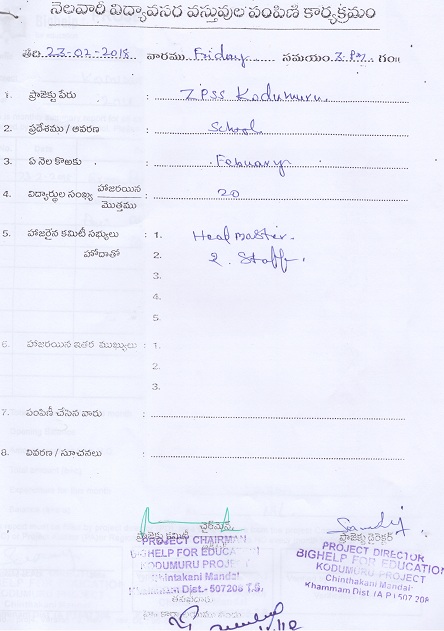 నెలవారీ విద్యావసర వస్తువుల పంపిణి కార్యక్రమం
తేది: 23-02-2018 వారము Friday సమయం: 3 PM గం॥
1. ప్రాజెక్టు పేరు : ZPSS Kodumuru.
2. ప్రదేశము / ఆవరణ : School
3. ఏ నెల కొఱకు : February
4. విద్యార్థుల సంఖ్య హాజరయిన : 20
మొత్తము
5. హాజరైన కమిటీ సభ్యులు : 1. Head master.
హోదాతో 2. 2. Staff.
3.
4.
5.
6. హాజరయిన ఇతర ముఖ్యులు : 1.
2.
3.
7. పంపిణీ చేసిన వారు :
8. వివరణ / సూచనలు :
ప్రాజెక్టు కమిటీ చైర్మెన్
ప్రాజెక్టు డైరెక్టర్
PROJECT CHAIRMAN
BIGHELP FOR EDUCATION
KODUMURU PROJECT
Chintakani Mandal
Khammam Dist.- 507208 T.S.
PROJECT DIRECTOR
BIGHELP FOR EDUCATION
KODUMURU PROJECT
Chinthakani Mandal
Khammam Dist (A P) 507 208